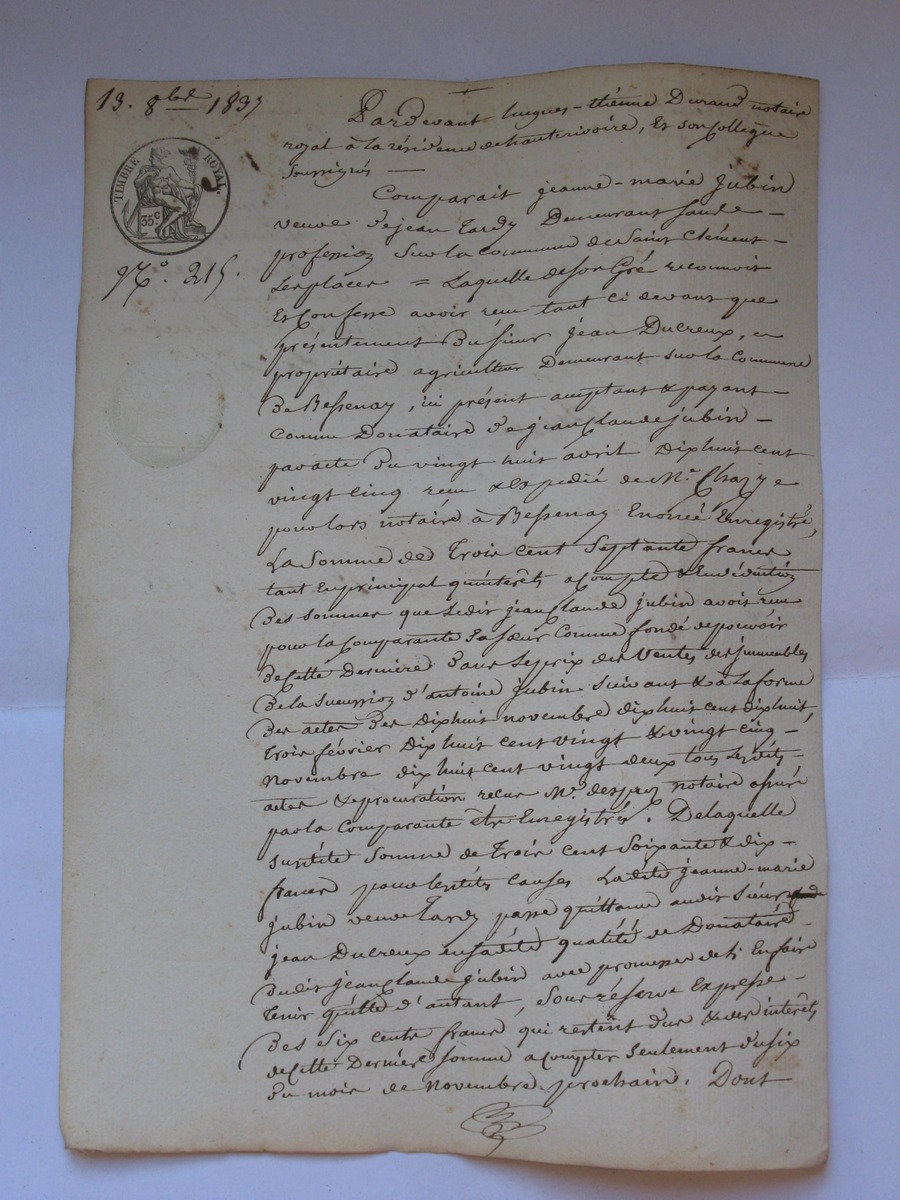 13. 8bre 1837
Pardevant hugues-étienne Durand notaire
royal à la résidence de hauterivoire, Et son Collegue
soussignés —
TIMBRE ROYAL.
35 c
N.° 215.
Comparait jeanne-marie jubin
veuve de jean Tardy Demeurant sans de -
profession sur la commune de Saint Clément -
Les places = Laquelle de son Gré reconnoit
Et Confesse avoir recu tant ci devant que
présentement Du sieur jean Ducreux,
propriétaire agriculteur Demeurant sur la Commune
De Bessenay, ici présent acceptant & payant -
Comme Donataire De jean Claude jubin -
par acte Du vingt huit avril Dix huit cent
vingt cinq recu & Expédié de Me.
pour lors notaire à Bessenay Enoncé Enregistré,
La Somme de Trois cent Septante francs
tant En principal qu'intérêts a Compte & En déduction
Des sommes que Ledit jean Claude jubin avoit recu
pour la Comparante sa sœur Comme fondé de pouvoir
De Cette Derniere Dans Les prix des Ventes des immeubles
De la Succession d'antoine jubin Suivant & à La forme
Des actes Des Dix huit novembre dix huit cent dix huit,
Trois février Dix huit cent vingt & vingt cinq -
Novembre dix huit cent vingt deux tous Lesdits -
actes & procuration recus Me. notaire
par la Comparante être Enregistrés. De laquelle
susdite Somme de Trois Cent Soixante & dix -
francs pour lesdites Causes Ladite jeanne-marie
jubin veuve Tardy passe quittance audit Sieur
jean Ducreux en sadite qualité de Donataire
Dudit jean Claude jubin avec promesse de l'En faire
Tenir quitte d'autant, Sous réserve Expresse -
Des Six Cents francs qui restent dus & des intérêts
de Cette Derniere somme a Compter Seulement du six
Du mois de Novembre prochain. Dont